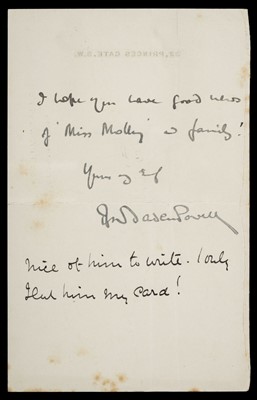 I hope you have good news
of 'Miss Molly' & family!
Yours
RSS Baden Powell
Nice of him to write. I only
sent him my card!